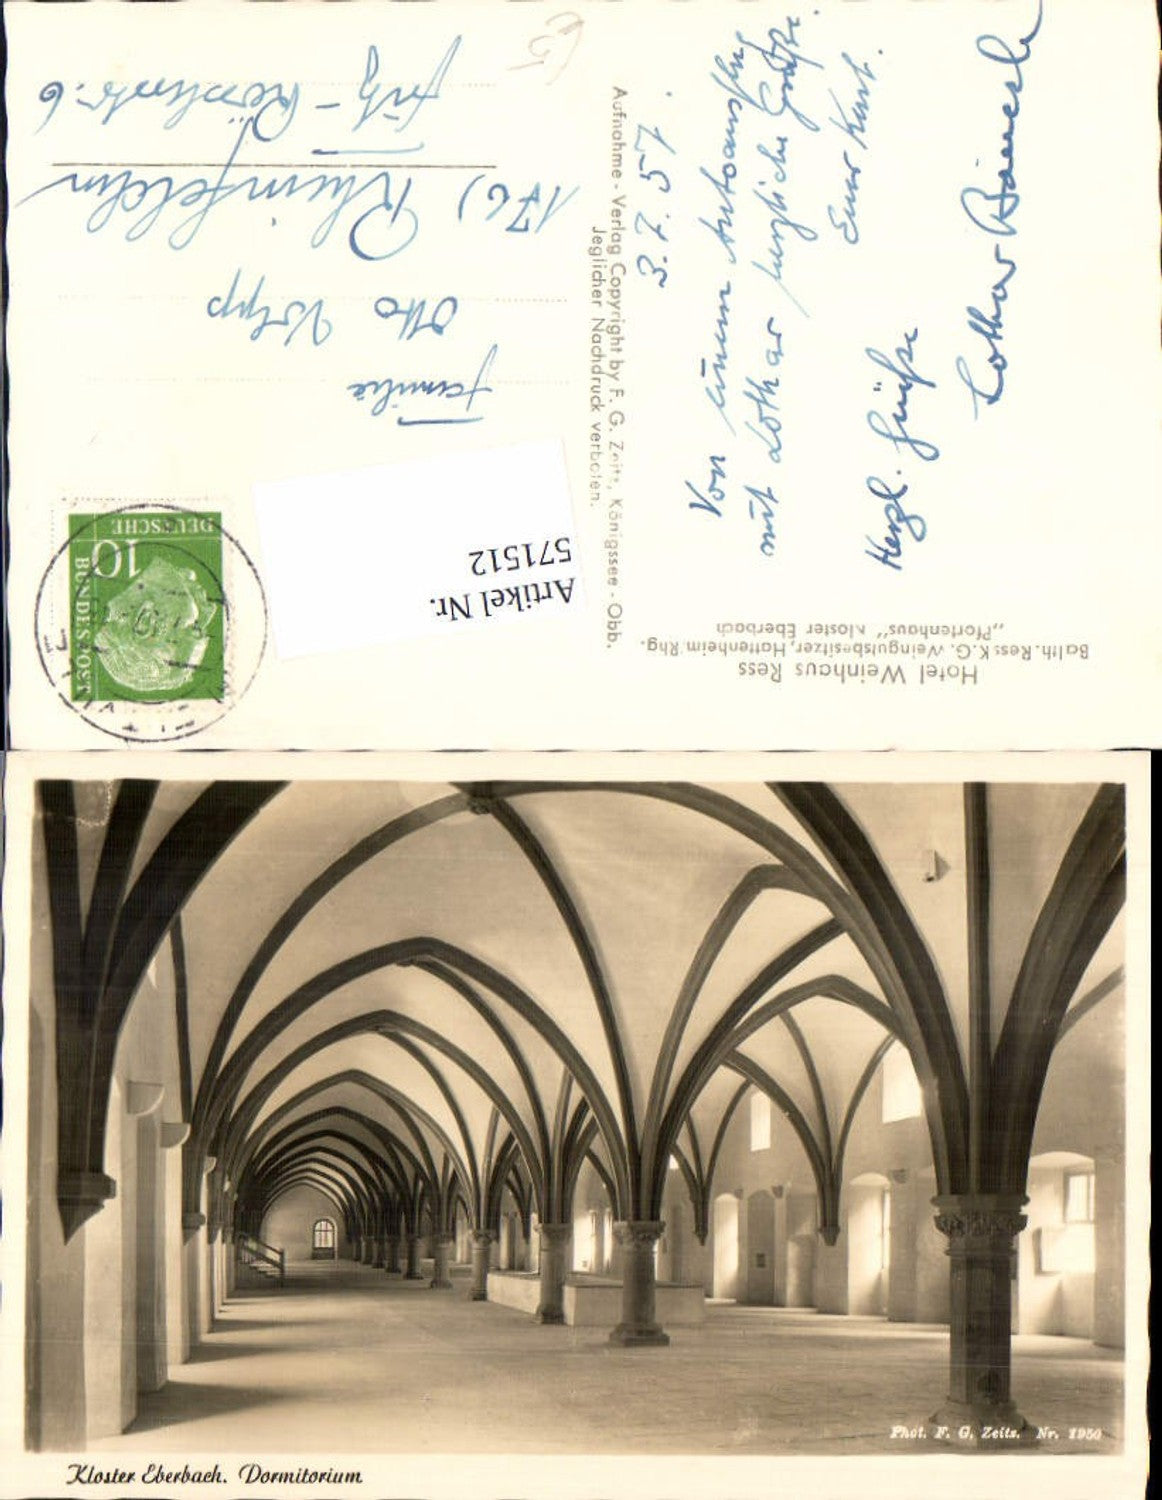 Hotel Weinhaus Ress
Balth. Ress K.G. Weingutsbesitzer, Hattenheim/Rhg.
„Pfortenhaus" Kloster Eberbach
Aufnahme - Verlag Copyright by F. G. Zeitz, Königssee - Obb.
Jeglicher Nachdruck verboten.
3.7.57.
Von einem Autoausflug
mit Lothar herzliche Grüße.
Euer Kurt.
Herzl. Grüße
Lothar
DEUTSCHE
BUNDESPOST
10
Artikel Nr.
571512
Familie
Otto
17b) Rheinfelden
Fritz-
6
Phot. F. G. Zeitz. Nr. 1950
Kloster Eberbach. Dormitorium